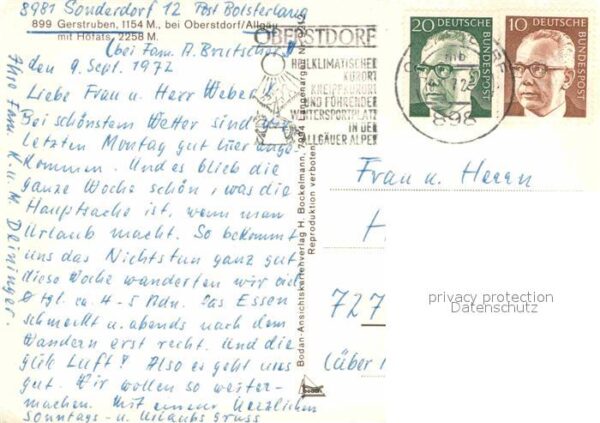 8981 Sonderdorf 12 Post Bolsterlang
899 Gerstruben, 1154 M., bei Oberstdorf/Allgäu
mit Höfats, 2258 M.
(bei Fam. A. Brutscher)
den 9. Sept. 1972
Liebe Frau u. Herr Weber!
Bei schönstem Wetter sind wir
letzten Montag gut hier ange-
kommen. Und es blieb die
ganze Woche schön, was die
Hauptsache ist, wenn man
Urlaub macht. So bekommt
uns das Nichtstun ganz gut
diese Woche wanderten wir viel
tgl. ca. 4-5 Stdn. Das Essen
schmeckt u. abends nach dem
Wandern erst recht. Und die
gute Luft! Also es geht uns
gut. Wir wollen so weiter-
machen. Mit einem herzlichen
Sonntags- u. Urlaubs Gruss
Ihre Fam. K. u. M. Deininger.
OBERSTDORF
HEILKLIMATISCHER
KURORT
KNEIPPKURORT
UND FÜHRENDER
WINTERSPORTPLATZ
IN DEN
ALLGÄUER ALPEN
898
20
DEUTSCHE
BUNDESPOST
10
DEUTSCHE
BUNDESPOST
Bodan-Ansichtskartenverlag H. Bockelmann, 7994 Langenargen
Reproduktion verboten
Frau u. Herrn
H
727
(über
privacy protection
Datenschutz